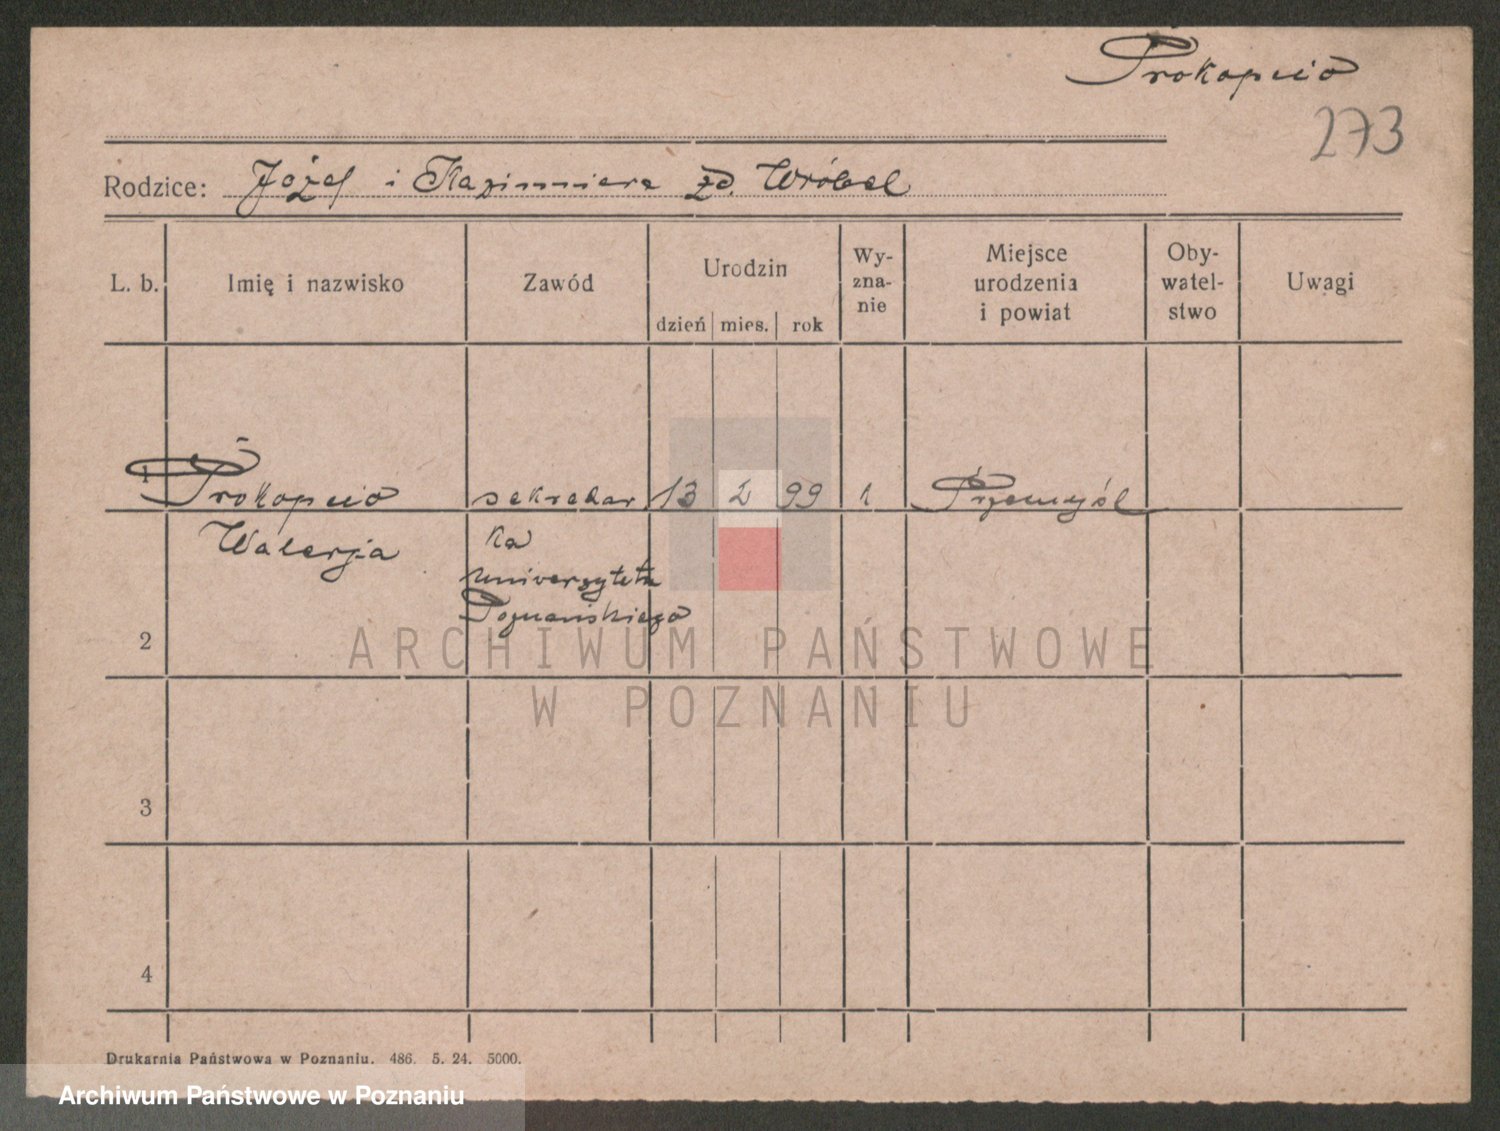 Prokopcio
273
Rodzice: Józef i Kazimiera zd. Wróbel
L. b. Imię i nazwisko Zawód Urodzin dzień mies. rok Wy-zna-nie Miejsce urodzenia i powiat Oby-watel-stwo Uwagi
1 Prokopcio sekretar 13 2 99 Przemyśl
Walerja ka
uniwersytetu
Poznańskiego
2
ARCHIWUM PAŃSTWOWE
W POZNANIU
3
4
Drukarnia Państwowa w Poznaniu. 486. 5. 24. 5000.
Archiwum Państwowe w Poznaniu